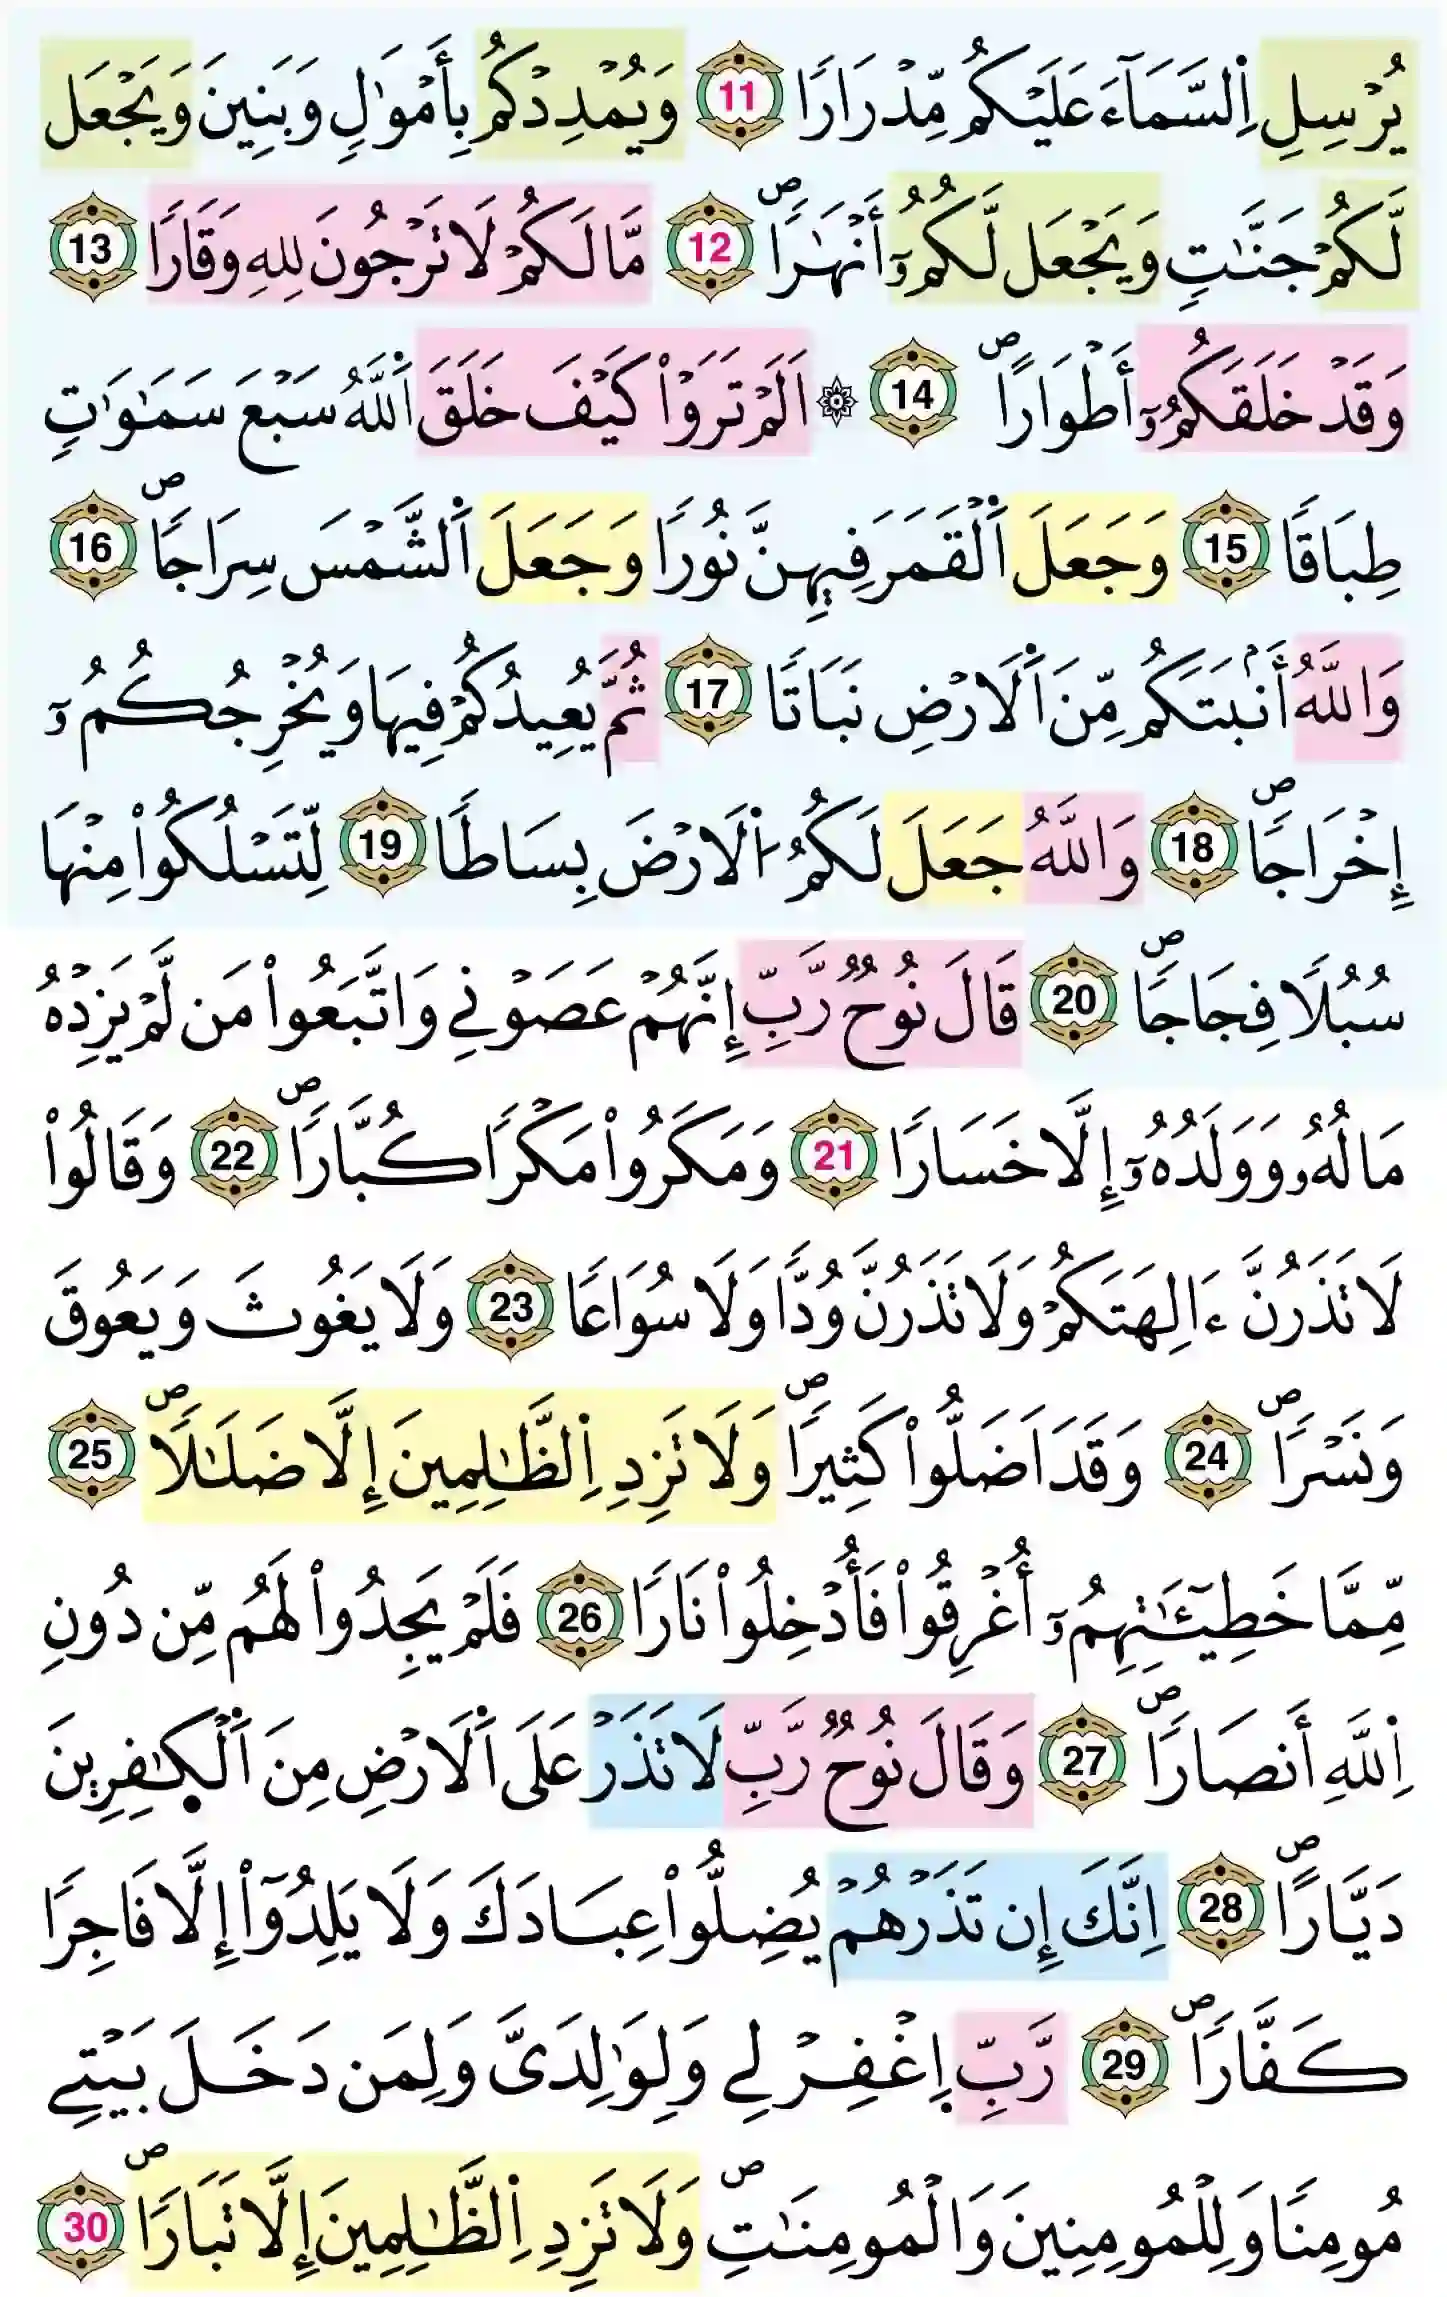 يُرْسِلِ اِ۬لسَّمَآءَ عَلَيْكُم مِّدْرَارٗا 11 وَيُمْدِدْكُم بِأَمْوَٰلٖ وَبَنِينَ وَيَجْعَل
لَّكُمْ جَنَّٰتٖ وَيَجْعَل لَّكُمُۥٓ أَنْهَٰراٗۖ 12 مَّا لَكُمْ لَا تَرْجُونَ لِلهِ وَقَارٗا 13
وَقَدْ خَلَقَكُمُۥٓ أَطْوَاراًۖ 14 ۞ اَلَمْ تَرَوْاْ كَيْفَ خَلَقَ اَ۬للَّهُ سَبْعَ سَمَٰوَٰتٖ
طِبَاقٗا 15 وَجَعَلَ اَ۬لْقَمَرَ فِيهِنَّ نُورٗا وَجَعَلَ اَ۬لشَّمْسَ سِرَاجاٗۖ 16
وَاللَّهُ أَنۢبَتَكُم مِّنَ اَ۬لَارْضِ نَبَاتٗا 17 ثُمَّ يُعِيدُكُمْ فِيهَا وَيُخْرِجُكُمُۥٓ
إِخْرَاجاٗۖ 18 وَاللَّهُ جَعَلَ لَكُمُ اُ۬لَارْضَ بِسَاطٗا 19 لِّتَسْلُكُواْ مِنْهَا
سُبُلٗا فِجَاجاٗۖ 20 قَالَ نُوحٞ رَّبِّ إِنَّهُمْ عَصَوْنِے وَاتَّبَعُواْ مَن لَّمْ يَزِدْهُ
مَالُهُۥ وَوَلَدُهُۥٓ إِلَّا خَسَارٗا 21 وَمَكَرُواْ مَكْرٗا كُبَّارٗاۖ 22 وَقَالُواْ
لَا تَذَرُنَّ ءَالِهَتَكُمْ وَلَا تَذَرُنَّ وُدّٗا وَلَا سُوَاعٗا 23 وَلَا يَغُوثَ وَيَعُوقَ
وَنَسْراٗۖ 24 وَقَدَ اَضَلُّواْ كَثِيراٗۖ وَلَا تَزِدِ اِ۬لظَّٰلِمِينَ إِلَّا ضَلَٰلاٗۖ 25
مِّمَّا خَطِيٓـَٰٔتِهِمُۥٓ أُغْرِقُواْ فَأُدْخِلُواْ نَارٗا 26 فَلَمْ يَجِدُواْ لَهُم مِّن دُونِ
اِ۬للَّهِ أَنصَاراٗۖ 27 وَقَالَ نُوحٞ رَّبِّ لَا تَذَرْ عَلَى اَ۬لَارْضِ مِنَ اَ۬لْكٰ۪فِرِينَ
دَيَّاراًۖ 28 اِنَّكَ إِن تَذَرْهُمْ يُضِلُّواْ عِبَادَكَ وَلَا يَلِدُوٓاْ إِلَّا فَاجِرٗا
كَفَّاراٗۖ 29 رَّبِّ اِ۪غْفِرْ لِے وَلِوَٰلِدَىَّ وَلِمَن دَخَلَ بَيْتِے
مُومِنٗا وَلِلْمُومِنِينَ وَالْمُومِنَٰتِۖ وَلَا تَزِدِ اِ۬لظَّٰلِمِينَ إِلَّا تَبَاراٗۖ 30